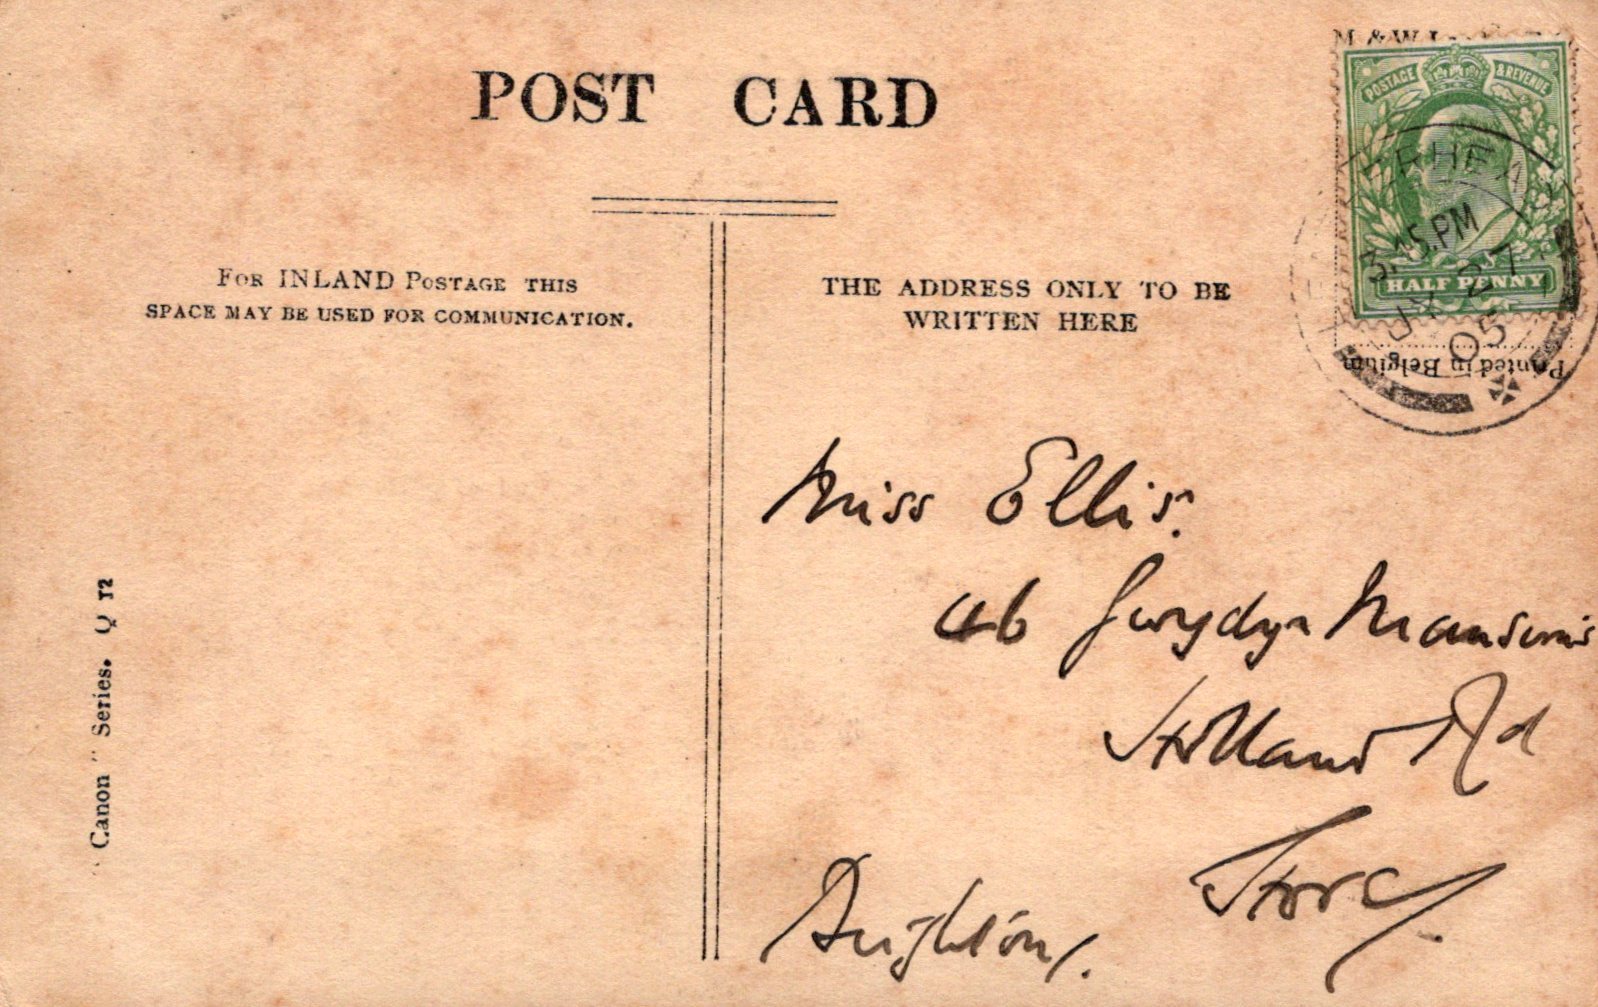 POST CARD
M & W
POSTAGE & REVENUE
3.15.PM
JY 27
05
HALF PENNY
Printed in Belgium
FOR INLAND POSTAGE THIS
SPACE MAY BE USED FOR COMMUNICATION.
THE ADDRESS ONLY TO BE
WRITTEN HERE
Miss Ellis.
46 Gwydyr Mansions
Holland Rd
Hove
Brighton.
"Canon" Series. Q 12